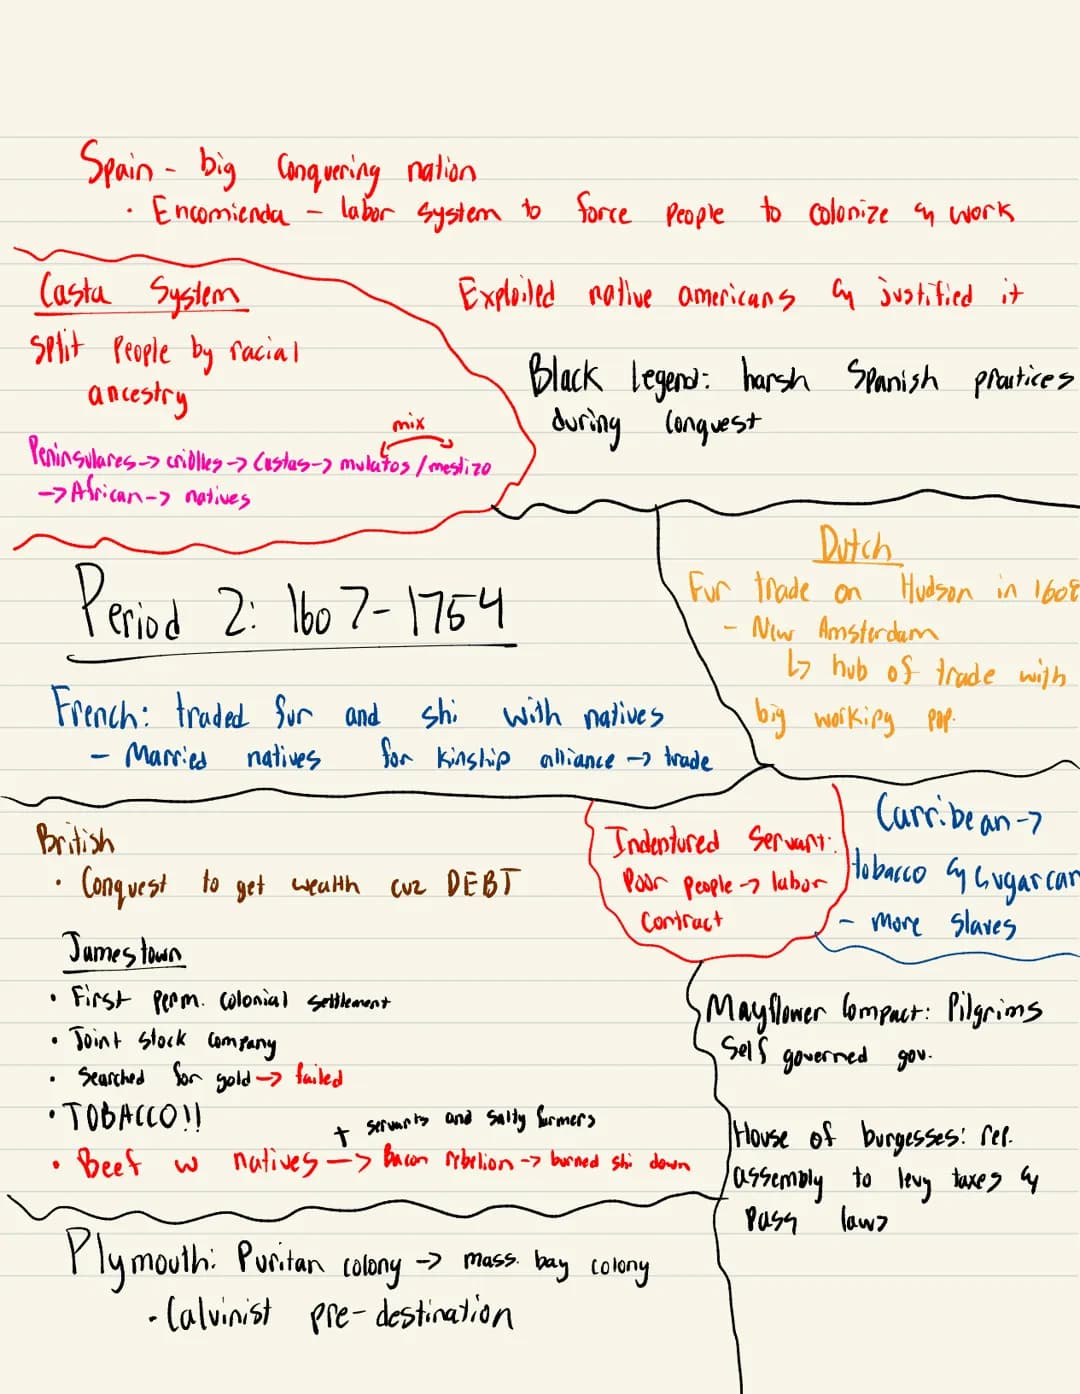 Spain - big Conquering nation
• Encomienda - labor system to force people to colonize & work
Casta System
split People by racial
ancestry
mix
Peninsulares -> criolles -> Castas -> mulatos / mestizo
-> African -> natives
Exploited native americans & justified it
Black legend: harsh Spanish practices
during Conquest
Period 2: 1607-1754
Dutch
Fur trade on Hudson in 1608
- New Amsterdam
↳ hub of trade with
big working pop.
French: traded fur and shi with natives
- Married natives for kinship alliance -> trade
British
• Conquest to get wealth cuz DEBT
Indentured Servant:
Poor people -> labor
Contract
Carribean ->
tobacco & Sugarcan
- more slaves
Jamestown
• First perm. colonial settlement
• Joint stock company
• Searched for gold -> failed
• TOBACCO!!
+ servants and salty farmers
• Beef w natives -> Bacon rebelion -> burned shi down
Mayflower Compact: Pilgrims
Self governed gov.
House of burgesses: rep.
assembly to levy taxes &
Pass laws
Plymouth: Puritan colony -> mass. bay colony
• Calvinist pre-destination